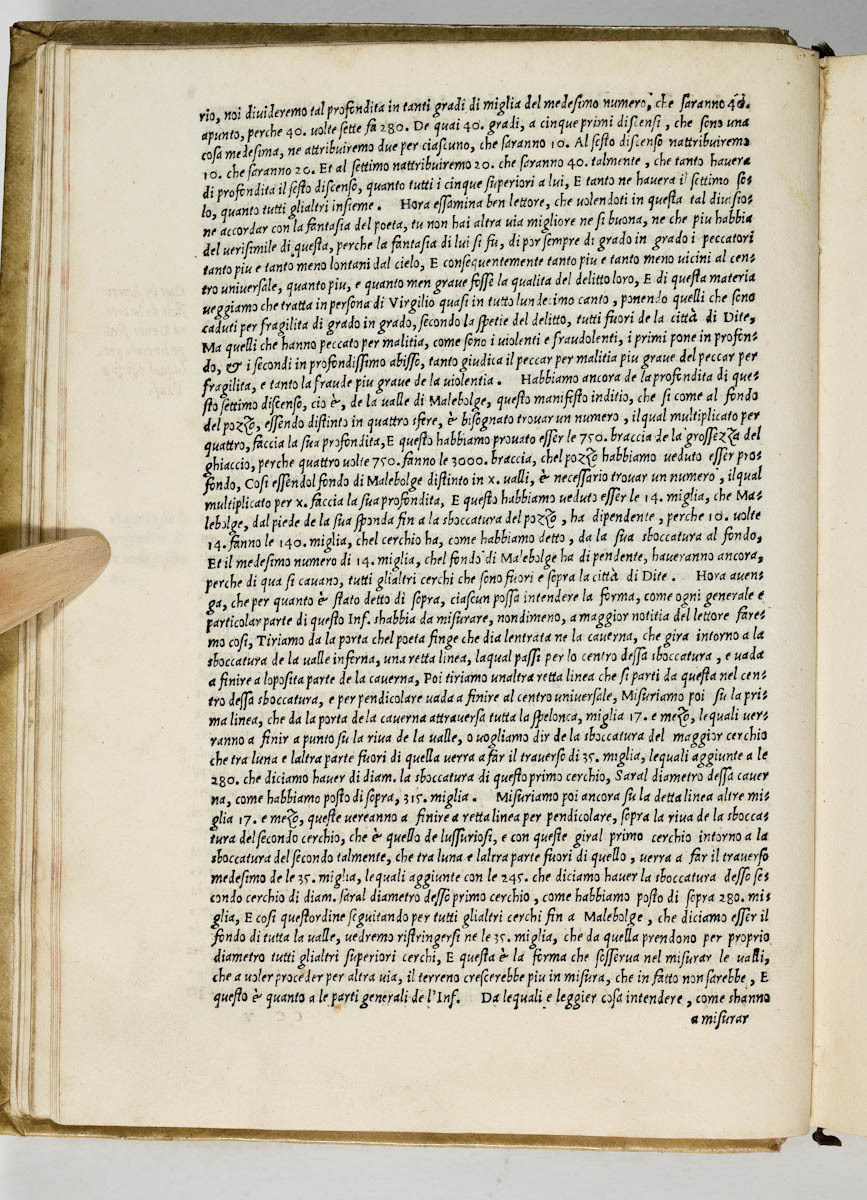 rio, noi divideremo tal profondita in tanti gradi di miglia del medesimo numero, che saranno 40.
apunto, perche 40. uolte sette fa 280. De quai 40. gradi, a cinque primi discensi, che sono una
cosa medesima, ne attribuiremo due per ciascuno, che saranno 10. Al sesto discenso nattribuiremo
10. che saranno 20. Et al settimo nattribuiremo 20. che saranno 40. talmente, che tanto hauera
di profondita il sesto discenso, quanto tutti i cinque superiori a lui, E tanto ne hauera il settimo so-
lo, quanto tutti glialtri insieme. Hora essamina ben lettore, che uolendoti in questa tal diuisio-
ne accordar con la fantasia del poeta, tu non hai altra uia migliore ne si buona, ne che piu habbia
del uerisimile di questa, perche la fantasia di lui si fu, di por sempre di grado in grado i peccatori
tanto piu e tanto meno lontani dal cielo, E consequentemente tanto piu e tanto meno uicini al cen-
tro uniuersale, quanto piu, e quanto men graue fosse la qualita del delitto loro, E di questa materia
ueggiamo che tratta in persona di Virgilio quasi in tutto lundecimo canto, ponendo quelli che sono
caduti per fragilita di grado in grado, secondo la spetie del delitto, tutti fuori de la città di Dite,
Ma quelli che hanno peccato per malitia, come sono i uiolenti e fraudolenti, i primi pone in profon-
do, & i secondi in profondissimo abisso, tanto giudica il peccar per malitia piu graue del peccar per
fragilita, e tanto la fraude piu graue de la uiolentia. Habbiamo ancora de la profondita di que-
sto settimo discenso, cio è, de la ualle di Malebolge, questo manifesto inditio, che si come al fondo
del pozzo, essendo distinto in quattro sfere, è bisognato trouar un numero, ilqual multiplicato per
quattro, faccia la sua profondita, E questo habbiamo prouato esser le 750. braccia de la grossezza del
ghiaccio, perche quattro uolte 750. fanno le 3000. braccia, chel pozzo habbiamo ueduto esser pro-
fondo, Cosi essendol fondo di Malebolge distinto in x. ualli, è necessario trouar un numero, ilqual
multiplicato per x. faccia la sua profondita, E questo habbiamo ueduto esser le 14. miglia, che Ma-
lebolge, dal piede de la sua sponda fin a la sboccatura del pozzo, ha dipendente, perche 10. uolte
14. fanno le 140. miglia, chel cerchio ha, come habbiamo detto, da la sua sboccatura al fondo,
Et il medesimo numero di 14. miglia, chel fondo di Malebolge ha di pendente, haueranno ancora,
perche di qua si cauano, tutti glialtri cerchi che sono fuori e sopra la città di Dite. Hora auen-
ga, che per quanto è stato detto di sopra, ciascun possa intendere la forma, come ogni generale e
particolar parte di questo Inf. shabbia da misurare, nondimeno, a maggior notitia del lettore fare-
mo cosi, Tiriamo da la porta chel poeta finge che dia lentrata ne la cauerna, che gira intorno a la
sboccatura de la ualle inferna, una retta linea, laqual passi per lo centro dessa sboccatura, e uada
a finire a loposita parte de la cauerna, Poi tiriamo unaltra retta linea che si parti da questa nel cen-
tro dessa sboccatura, e per pendicolare uada a finire al centro uniuersale, Misuriamo poi su la pri-
ma linea, che da la porta de la cauerna attrauersa tutta la spelonca, miglia 17. e mezo, lequali uer-
ranno a finir a punto su la riua de la ualle, o uogliamo dir de la sboccatura del maggior cerchio
che tra luna e laltra parte fuori di quella uerra a far il trauerso di 35. miglia, lequali aggiunte a le
280. che diciamo hauer di diam. la sboccatura di questo primo cerchio, Saral diametro dessa cauer
na, come habbiamo posto di sopra, 315. miglia. Misuriamo poi ancora su la detta linea altre mi-
glia 17. e mezo, queste uereanno a finire a retta linea per pendicolare, sopra la riua de la sbocca-
tura del secondo cerchio, che è quello de lussuriosi, e con queste giral primo cerchio intorno a la
sboccatura del secondo talmente, che tra luna e laltra parte fuori di quello, uerra a far il trauerso
medesimo de le 35. miglia, lequali aggiunte con le 245. che diciamo hauer la sboccatura desso se-
condo cerchio di diam. saral diametro desso primo cerchio, come habbiamo posto di sopra 280. mi-
glia, E cosi questordine seguitando per tutti glialtri cerchi fin a Malebolge, che diciamo esser il
fondo di tutta la ualle, uedremo ristringersi ne le 35. miglia, che da quella prendono per proprio
diametro tutti glialtri superiori cerchi, E questa è la forma che sesserua nel misurar le ualli,
che a uoler proceder per altra uia, il terreno crescerebbe piu in misura, che in fatto non sarebbe, E
questo è quanto a le parti generali de l'Inf. Da lequali e leggier cosa intendere, come shanno
a misurar